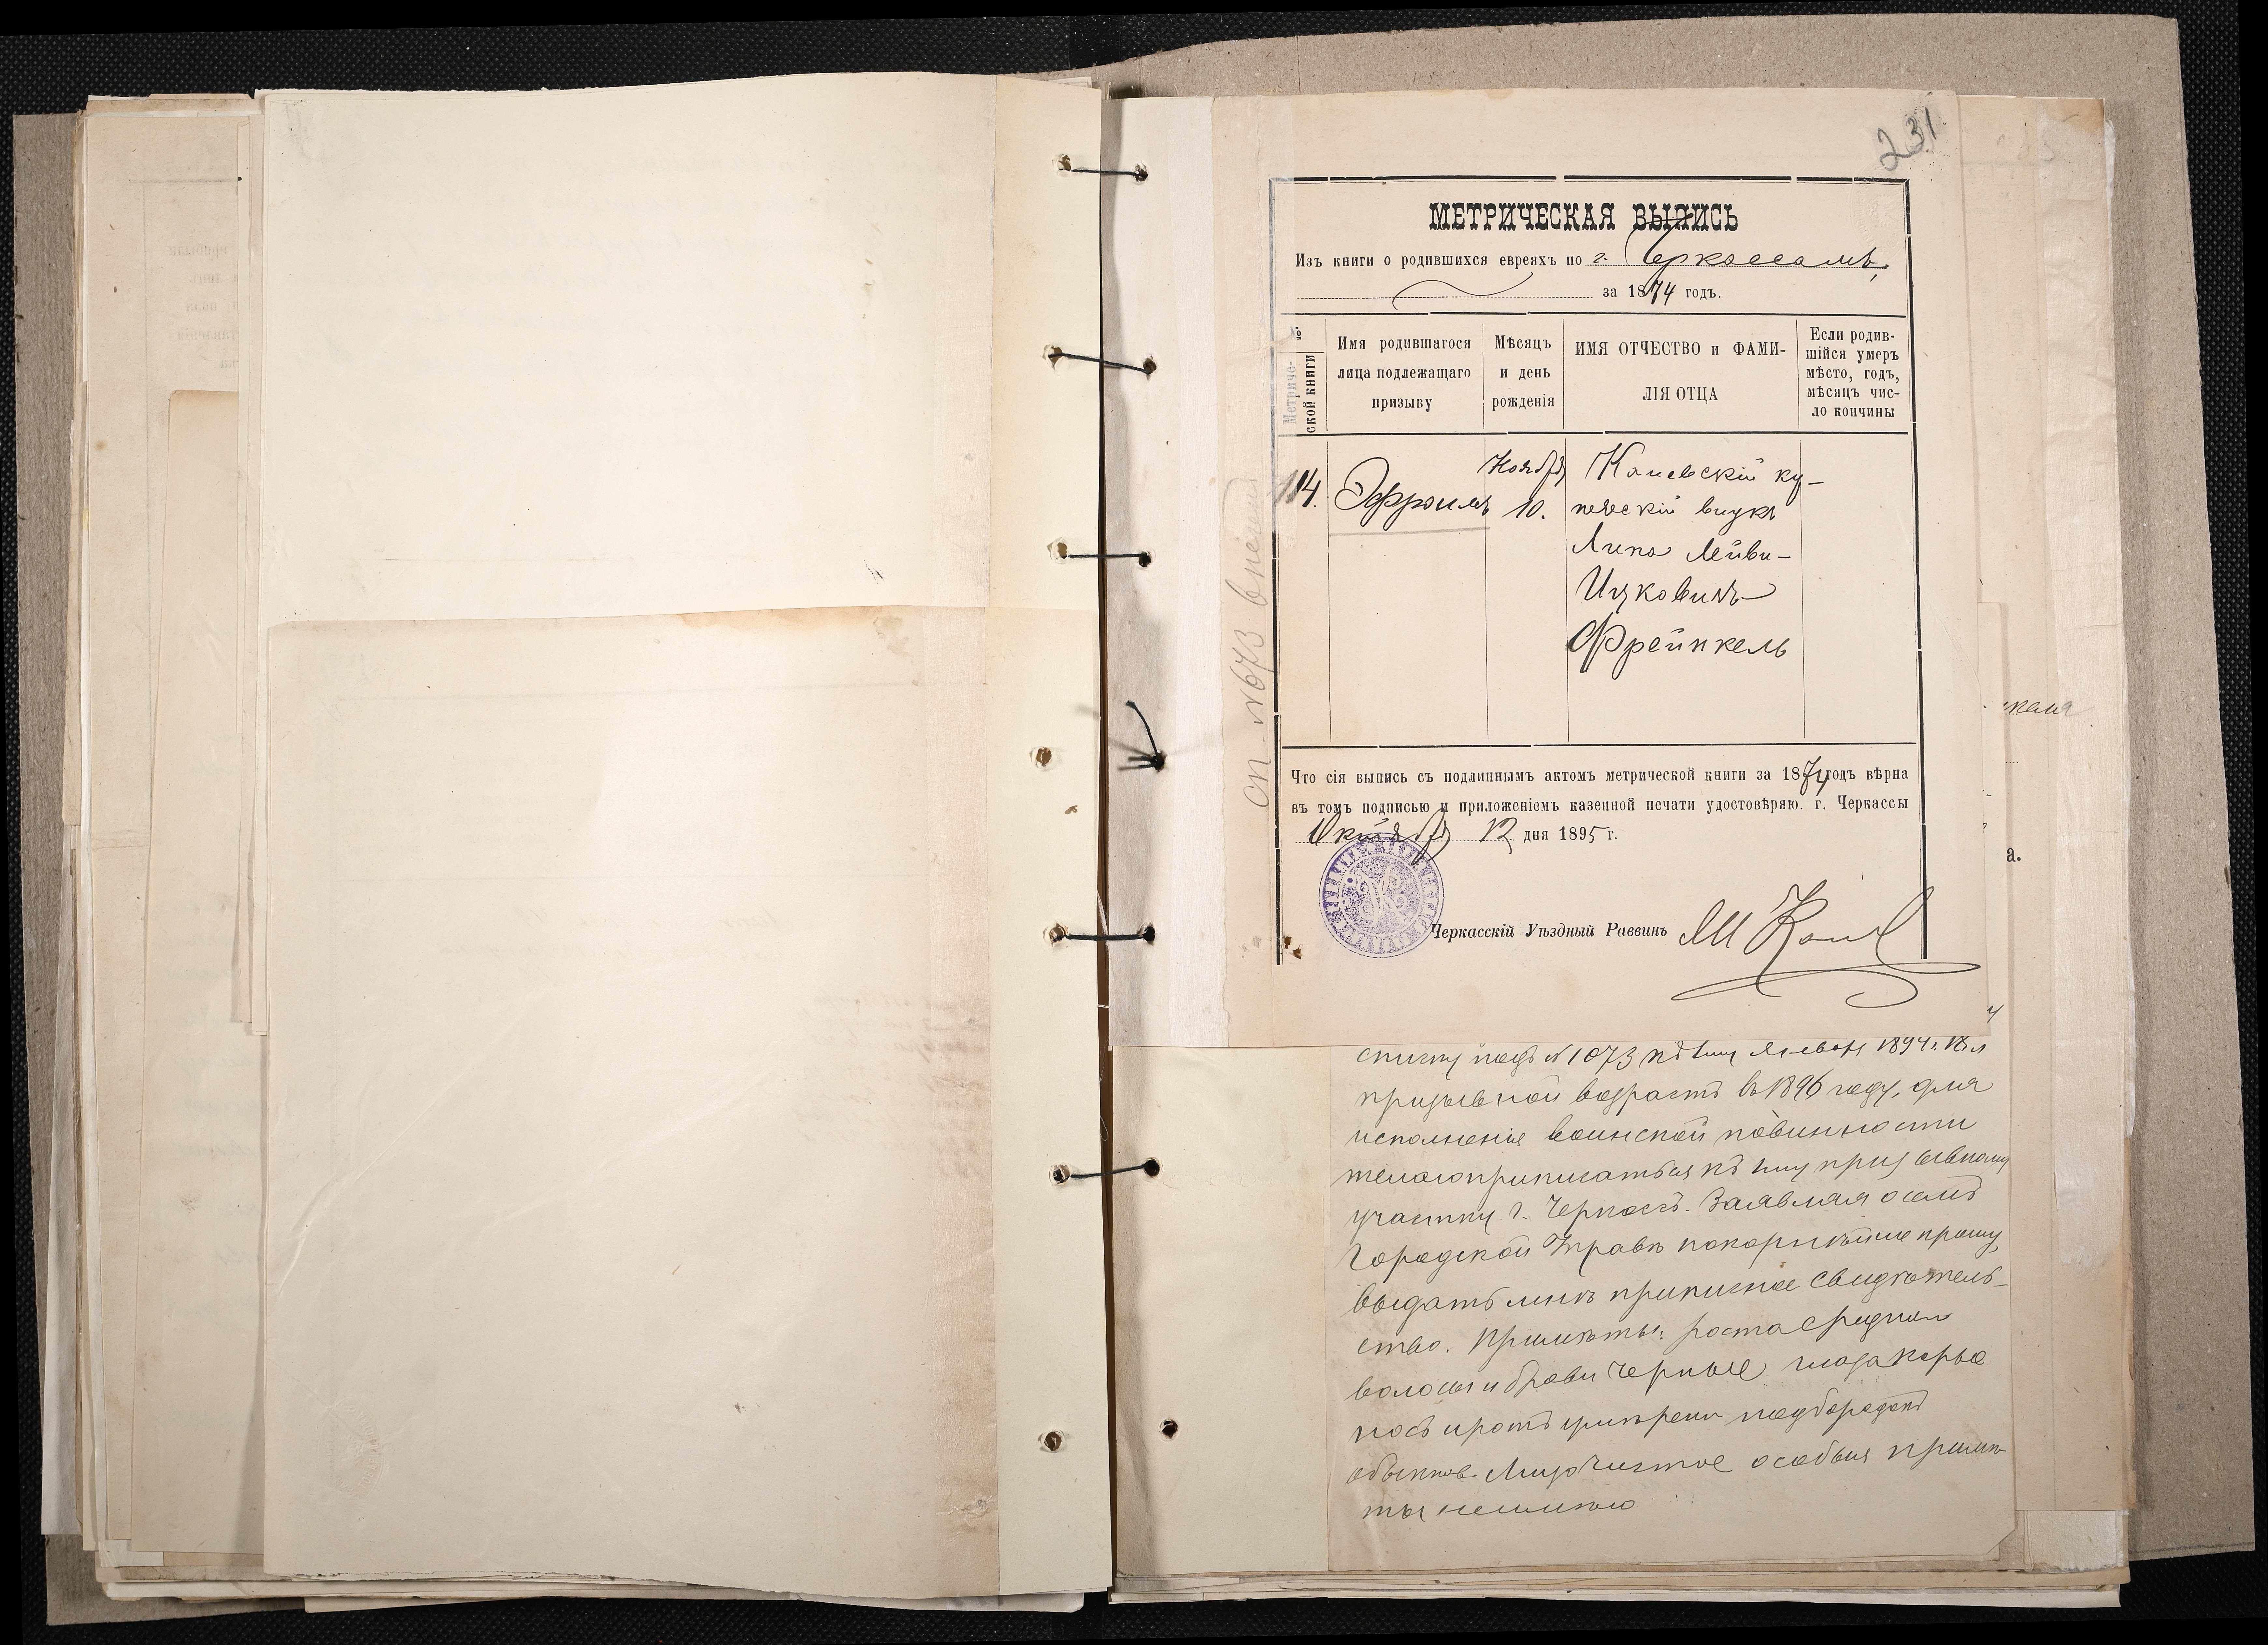 231.
МЕТРИЧЕСКАЯ ВЫПИСЬ
Изъ книги о родившихся евреяхъ по г. Черкассамъ,
за 1874 годъ.
№ Метриче-
ской книги
Имя родившагося
лица подлежащаго
призыву
Мѣсяцъ
и день
рожденія
ИМЯ ОТЧЕСТВО и ФАМИ-
ЛІЯ ОТЦА
Если родив-
шійся умеръ
мѣсто, годъ,
мѣсяцъ чис-
ло кончины
114.
Эфроимъ
Ноября
10.
Каневскій ку-
печескій внукъ
Липа Лейви-
Ицковичъ
Фрейнкель
Что сія выпись съ подлиннымъ актомъ метрической книги за 1874 годъ вѣрна
въ томъ подписью и приложеніемъ казенной печати удостовѣряю. г. Черкассы
Октября 12 дня 1895 г.
Черкасскій Уѣздный Раввинъ
а.
списку подъ № 1073 къ 1му Января 1894 г.
призывной возрастъ въ 1896 году, для
исполненія воинской повинности
желаю приписаться къ 1му призывному
участку г. Черкассъ. Заявляя о семъ
Городской Управѣ покорнѣйше прошу,
выдать мнѣ приписное свидѣтель-
ство. Примѣты: роста средняго
волосы и брови черные глаза карые
носъ и ротъ умѣрены подбородокъ
обыкнов. Лицо чистое особыя примѣ-
ты неимѣю